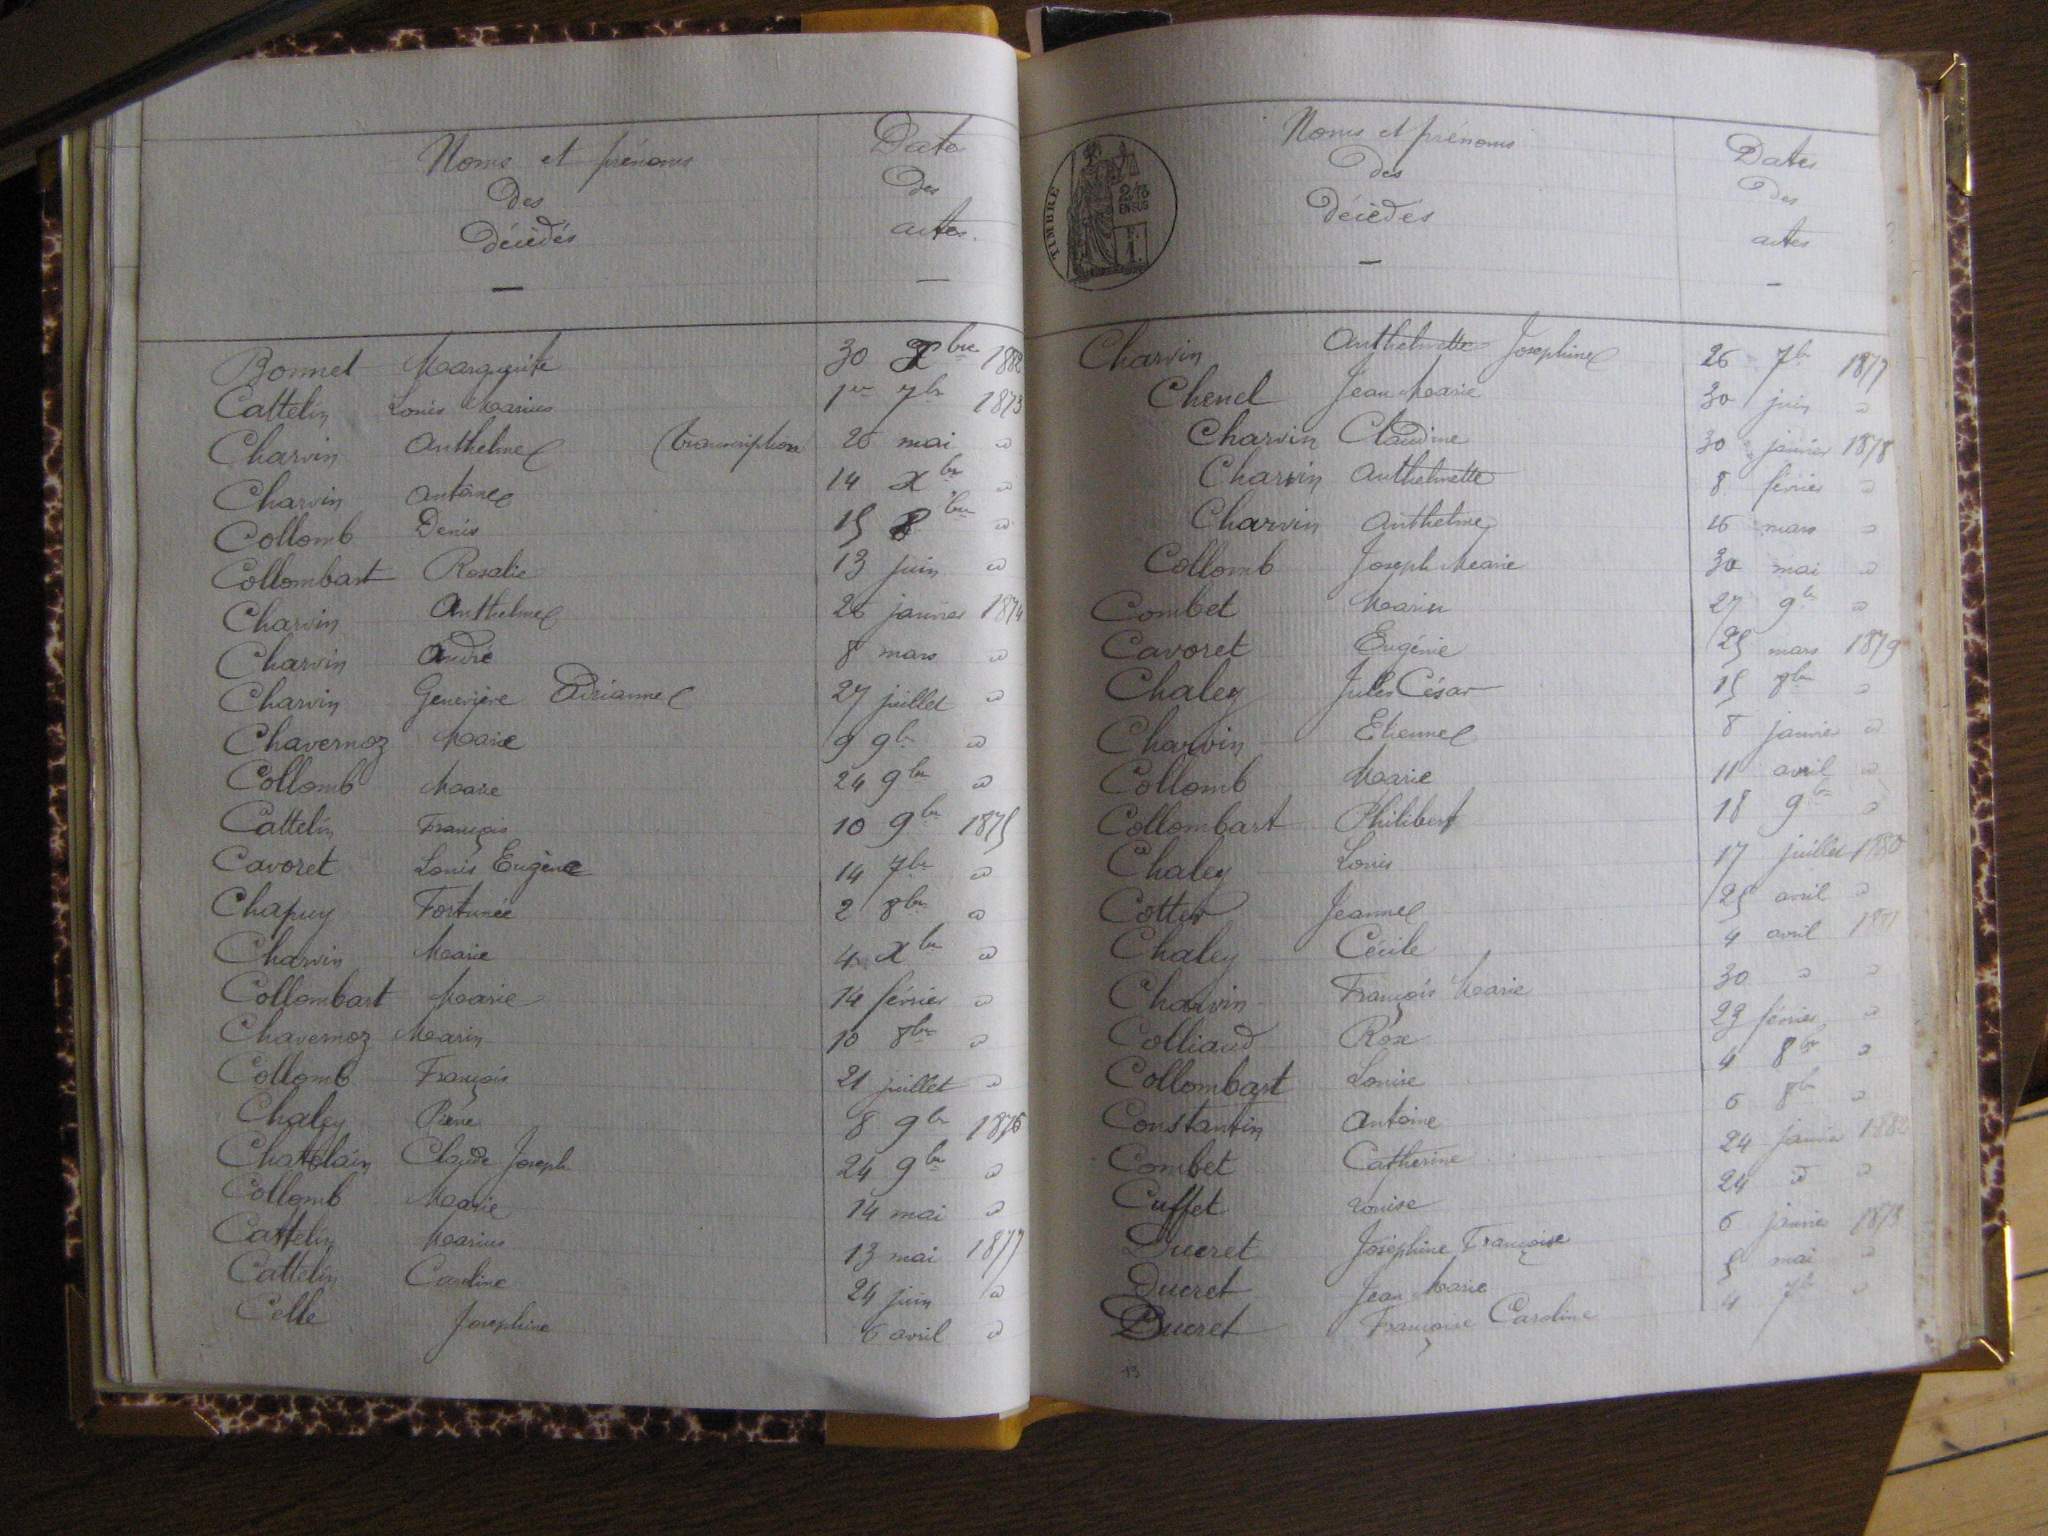 Noms et prénoms
Des
Décédés
Date
Des
actes.
Bonnet Marguerite 30 Xbre 1882
Cattelin Louis Marius 1er 7bre 1873
Charvin Anthelme (transcription 26 mai d
Charvin Antoine 14 Xbre d
Collomb Denis 15 8bre d
Collombart Rosalie 13 juin d
Charvin Anthelme 26 janvier 1874
Charvin André 8 mars d
Charvin Geneviève Adrianne 27 juillet d
Chavernoz Marie 9 9bre d
Collomb Marie 24 9bre d
Cattelin François 10 9bre 1875
Cavoret Louis Eugène 14 7bre d
Chapuy Fortunée 2 8bre d
Charvin Marie 4 Xbre d
Collombart Marie 14 février d
Chavernoz Marin 10 8bre d
Collomb François 21 juillet d
Chaley 8 9bre 1876
Chatelain Claude Joseph 24 9bre d
Collomb Marie 14 mai d
Cattelin Marius 13 mai 1877
Cattelin Caroline 24 juin d
Celle Josephine 6 avril d
TIMBRE
2/10
EN SUS
Noms et prénoms
Des
Décédés
Dates
Des
actes
Charvin Anthelmette Josephine 26 7bre 1877
Chenel Jean Marie 30 juin d
Charvin Claudine 30 janvier 1878
Charvin Anthelmette 8 février d
Charvin Anthelme 16 mars d
Collomb Joseph Marie 30 mai d
Combet Marin 27 9bre d
Cavoret Eugénie 25 mars 1879
Chaley Jules César 15 8bre d
Charvin Etienne 8 janvier d
Collomb Marie 11 avril d
Collombart Philibert 18 9bre d
Chaley Louis 17 juillet 1880
Cotter Jeanne 25 avril d
Chaley Cécile 4 avril 1881
Charvin François Marie 30 d d
Colliaud Rose 23 février d
Collombart Louise 4 8bre d
Constantin Antoine 6 8bre d
Combet Catherine 24 janvier 1882
Cuffet Louise 24 d d
Ducret Joséphine Françoise 6 janvier 1873
Ducret Jean Marie 5 mai d
Ducret Françoise Caroline 4 7bre d
13